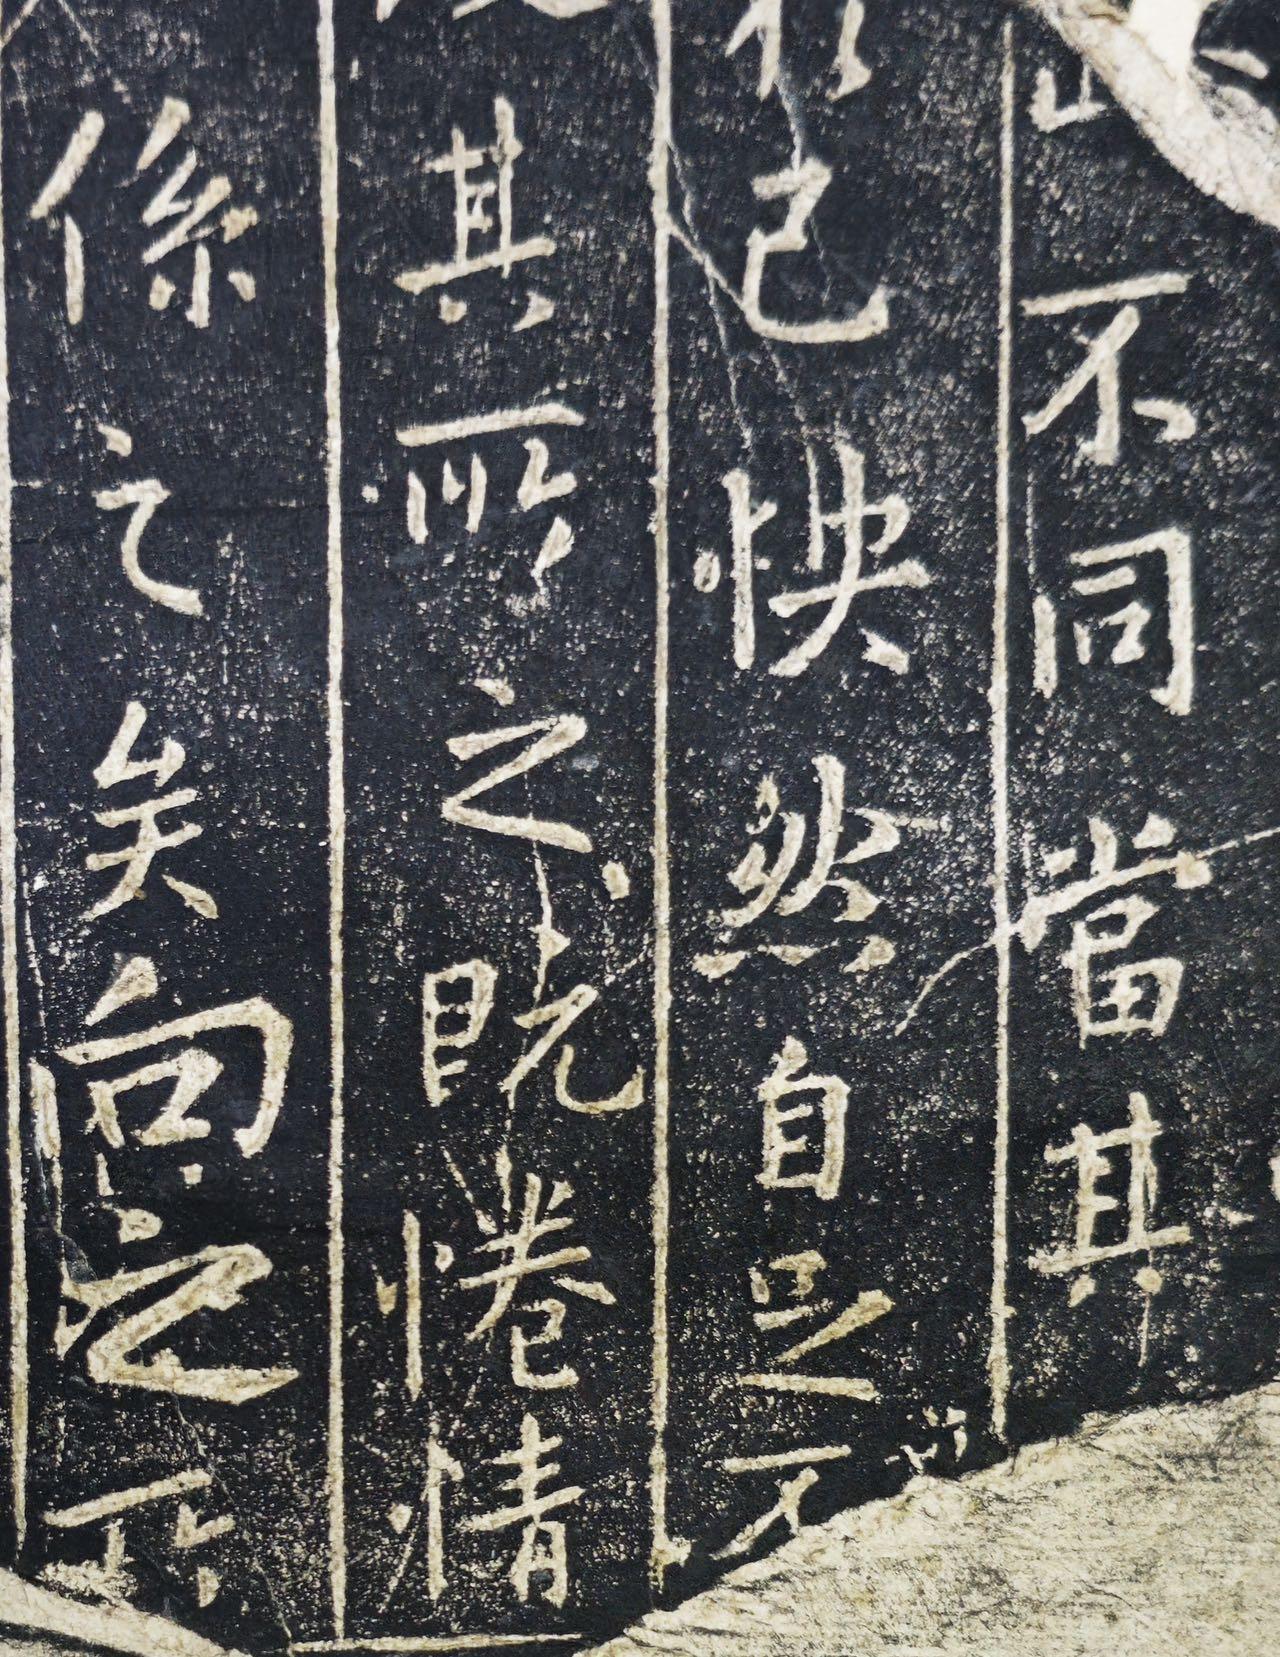 不同當其
己怏然自足不
其所之既惓情
係之矣向之所